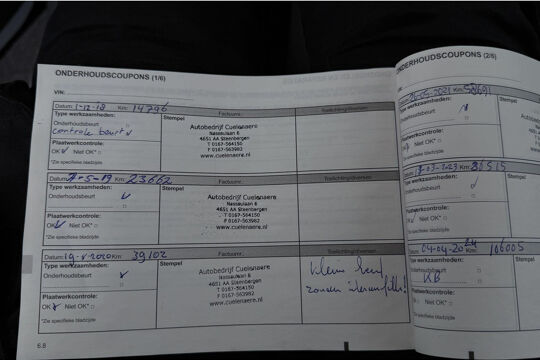 ONDERHOUDSCOUPONS (1/6)
VIN:
Datum: 1-12-18 Km: 14796 Factuurnr.: Toelichting/diversen
Type werkzaamheden: Stempel
Onderhoudsbeurt
controle beurt
Plaatwerkcontrole:
OK Niet OK*
*Zie specifieke bladzijde
Autobedrijf Cuelenaere
Nassaulaan 6
4651 AA Steenbergen
T 0167-564150
F 0167-563982
www.cuelenaere.nl
Datum: -5-19 Km: 23662 Factuurnr.: Toelichting/diversen
Type werkzaamheden: Stempel
Onderhoudsbeurt
Plaatwerkcontrole:
OK Niet OK*
*Zie specifieke bladzijde
Autobedrijf Cuelenaere
Nassaulaan 6
4651 AA Steenbergen
T 0167-564150
F 0167-563982
www.cuelenaere.nl
Datum: 2020 Km: 39102 Factuurnr.: Toelichting/diversen
Type werkzaamheden: Stempel
Onderhoudsbeurt
Plaatwerkcontrole:
OK Niet OK*
*Zie specifieke bladzijde
Autobedrijf Cuelenaere
Nassaulaan 6
4651 AA Steenbergen
T 0167-564150
F 0167-563982
www.cuelenaere.nl
kleine beurt
zonder
6.8
ONDERHOUDSCOUPONS (2/6)
VIN:
Datum: -05-2021 Km:
Type werkzaamheden:
Onderhoudsbeurt
Niet OK*
*Zie specifieke bladzijde
Km: 80515
Type werkzaamheden:
Onderhoudsbeurt
Plaatwerkcontrole:
OK Niet OK*
*Zie specifieke bladzijde
Datum: 04-04-2024 106005
Type werkzaamheden:
Onderhoudsbeurt
KB
Plaatwerkcontrole:
OK Niet OK*
*Zie specifieke bladzijde